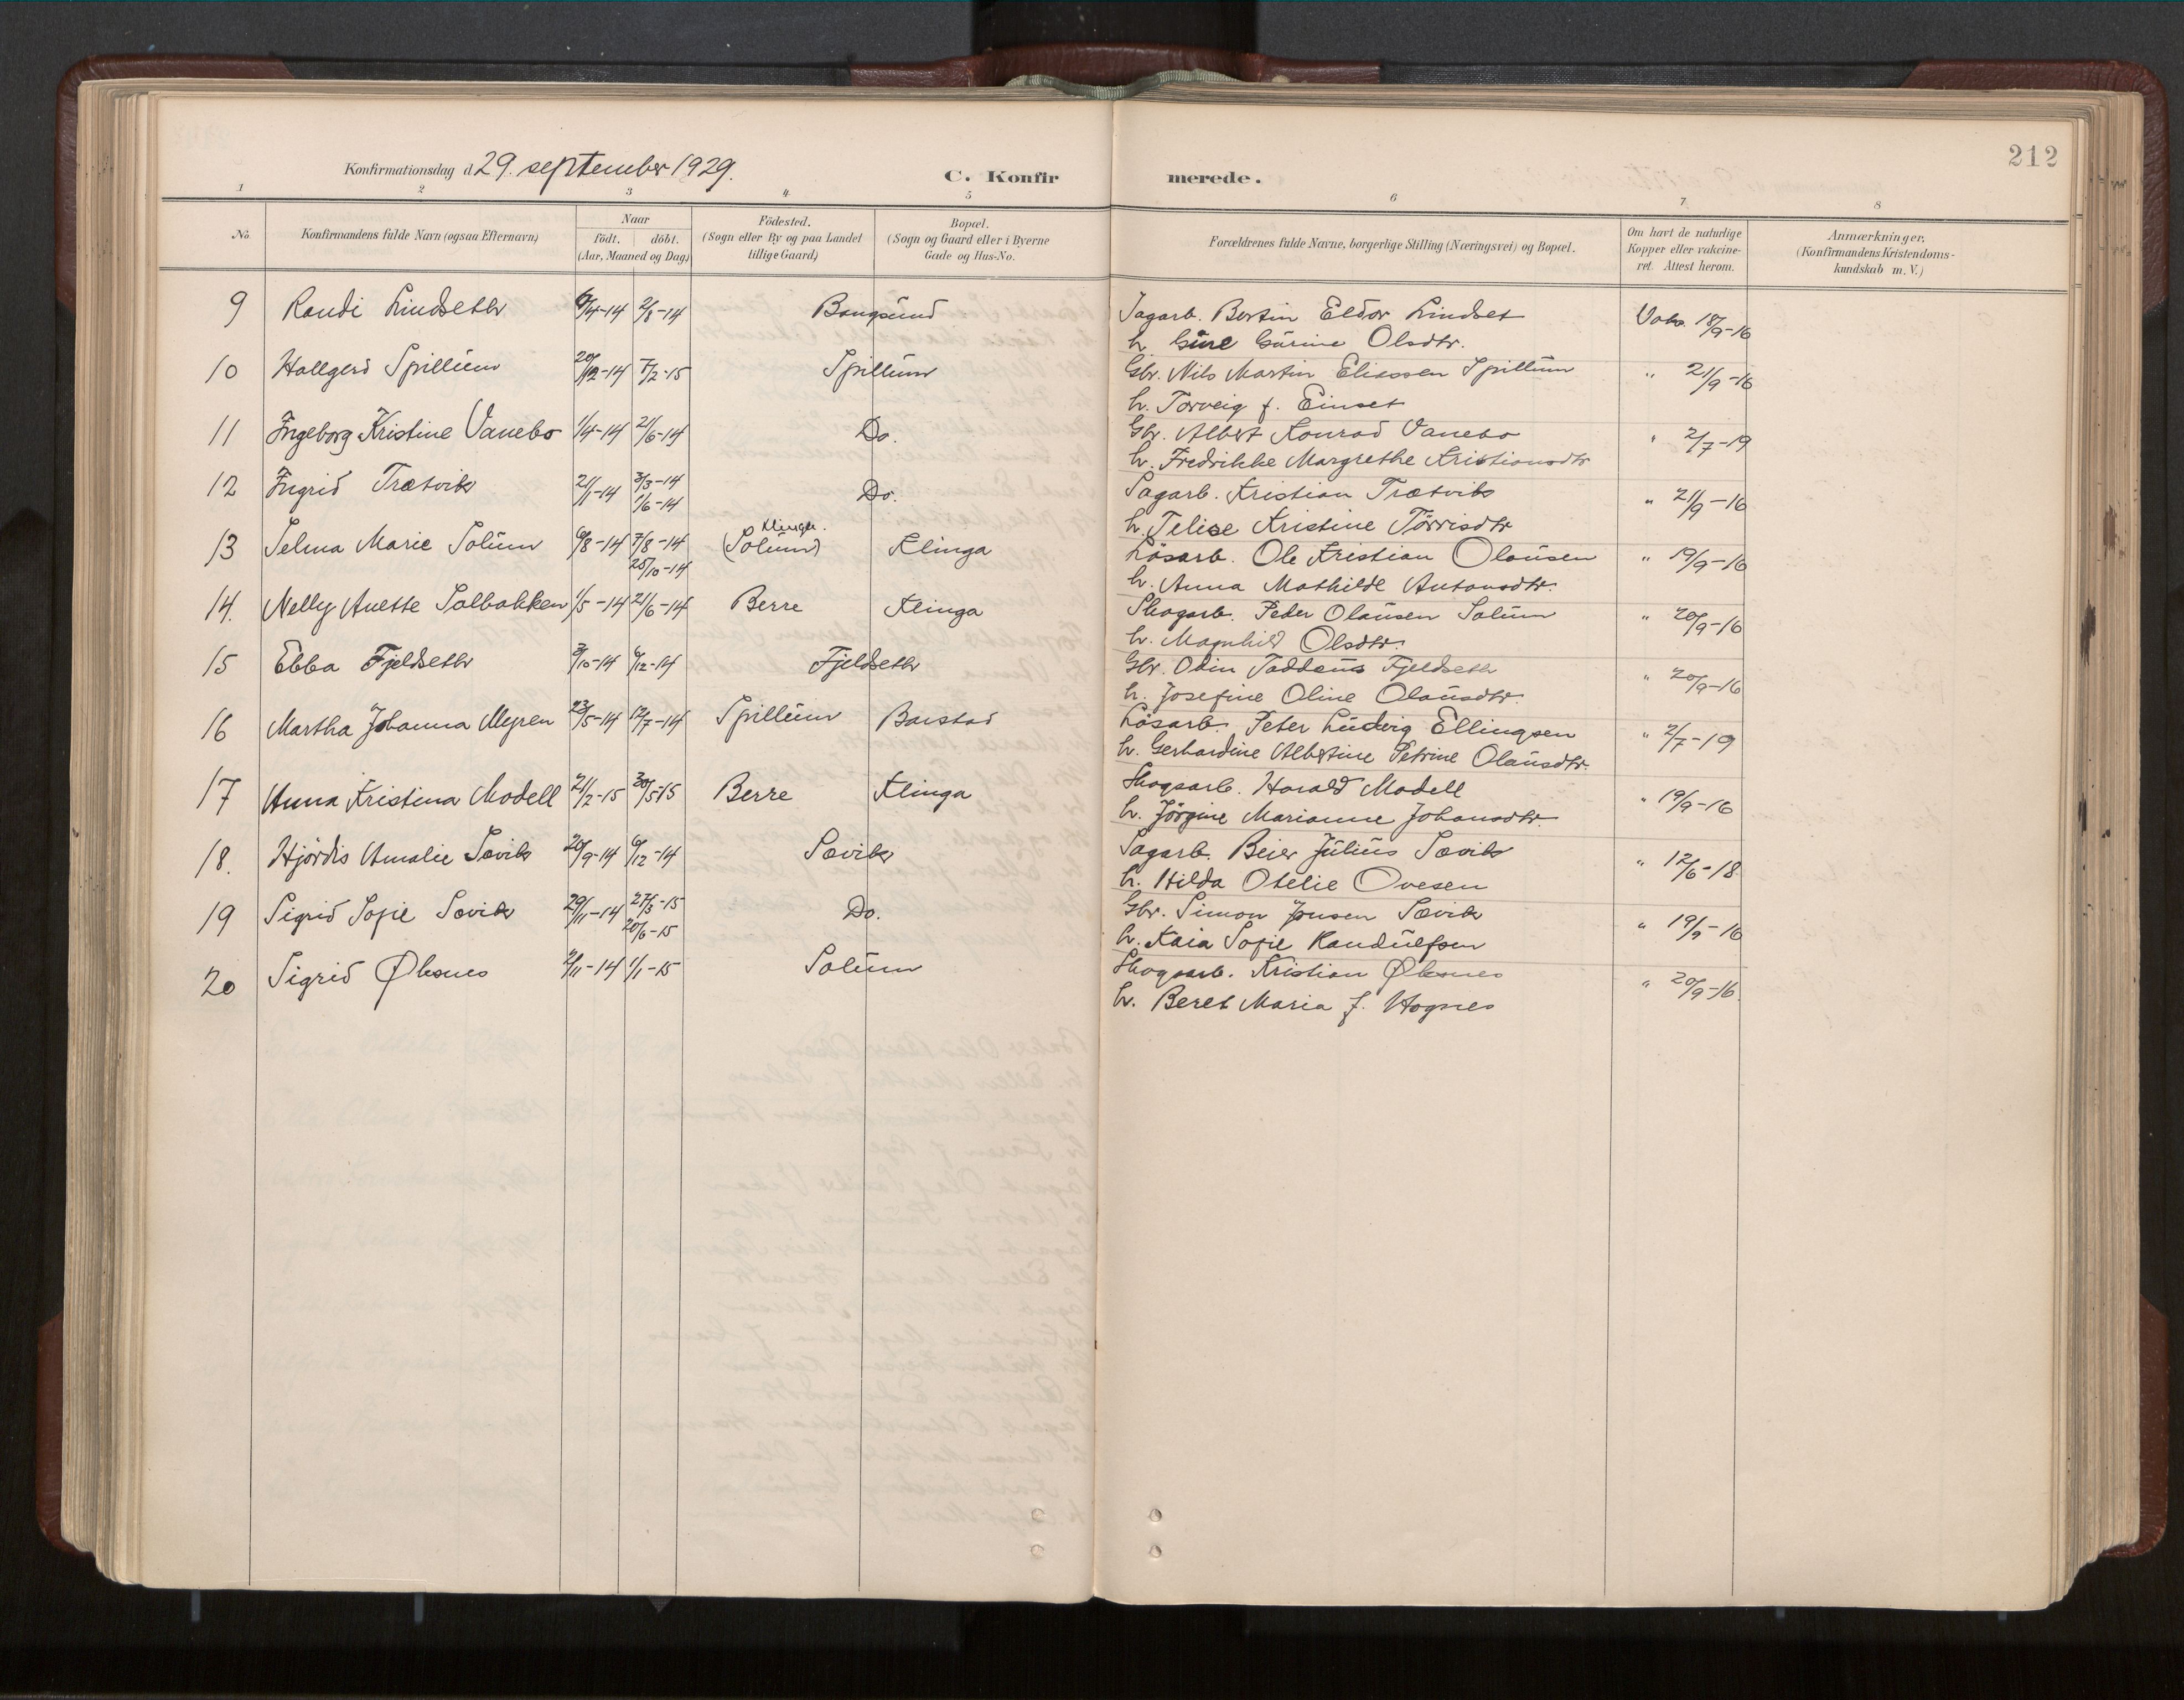 212
Konfirmationsdag d 29. september 1929.
C. Konfirmerede.
1 2 3 4 5 6 7 8
No. Konfirmandens fulde Navn (ogsaa Efternavn) Naar födt. döbt. (Aar, Maaned og Dag) Födested. (Sogn eller By og paa Landet tillige Gaard) Bopæl. (Sogn og Gaard eller i Byerne Gade og Hus-No. Forældrenes fulde Navne, borgerlige Stilling (Næringsvei) og Bopæl. Om havt de naturlige Kopper eller vakcineret. Attest herom. Anmærkninger, (Konfirmandens Kristendomskundskab m. V.)
9 Randi Lindseth 6/4-14 2/8-14 Bangsund Sagarb. Bertin Eldor Lindset Vaks. 18/9-16
h. Gine Gurine Olsdtr.
10 Hallgerd Spillum 20/12-14 7/2-15 Spillum Gbr. Nils Martin Eliassen Spillum " 21/9-16
h. Torveig f. Einset
11 Ingeborg Kristine Vanebo 1/4-14 21/6-14 Do. Gbr. Albert Konrad Vanebo " 2/7-19
h. Fredrikke Margrethe Kristiansdtr
12 Ingrid Trætvik 21/1-14 3/3-14 Do. Sagarb. Kristian Trætvik " 21/9-16
1/6-14
h. Telise Kristine Törrisdtr
13 Selma Marie Solum 6/8-14 7/8-14 Klinga. (Solum) Klinga Lösarb. Ole Kristian Olausen " 19/9-16
25/10-14
h. Anna Mathilde Antonsdtr.
14. Nelly Anette Solbakken 1/5-14 21/6-14 Berre Klinga Skogarb. Peder Olausen Solum " 20/9-16
h. Magnhild Olsdtr.
15 Ebba Fjeldseth 3/10-14 6/12-14 Fjeldseth Gbr. Odin Taddeus Fjeldseth " 20/9-16
h. Josefine Oline Olausdtr.
16 Martha Johanna Myren 23/5-14 12/7-14 Spillum Barstad Lösarb. Peter Ludvig Ellingsen " 2/7-19
h. Gerhardine Albertine Petrine Olausdtr.
17 Anna Kristina Modell 21/2-15 30/5-15 Berre Klinga Skogsarb. Harald Modell " 19/9-16
h. Jörgine Marianne Johansdtr.
18. Hjördis Amalie Sævik 20/9-14 6/12-14 Sævik Sagarb. Beier Julius Sævik " 12/6-18
h. Hilda Otelie Ovesen
19 Sigrid Sofie Sævik 29/11-14 27/3-15 Do. Gbr. Simon Jensen Sævik " 19/9-16
20/6-15
h. Kaia Sofie Randulfsen
20 Sigrid Øksnes 2/11-14 1/1-15 Solum Skogsarb. Kristian Øksnes " 20/9-16.
h. Beret Maria f. Hognes